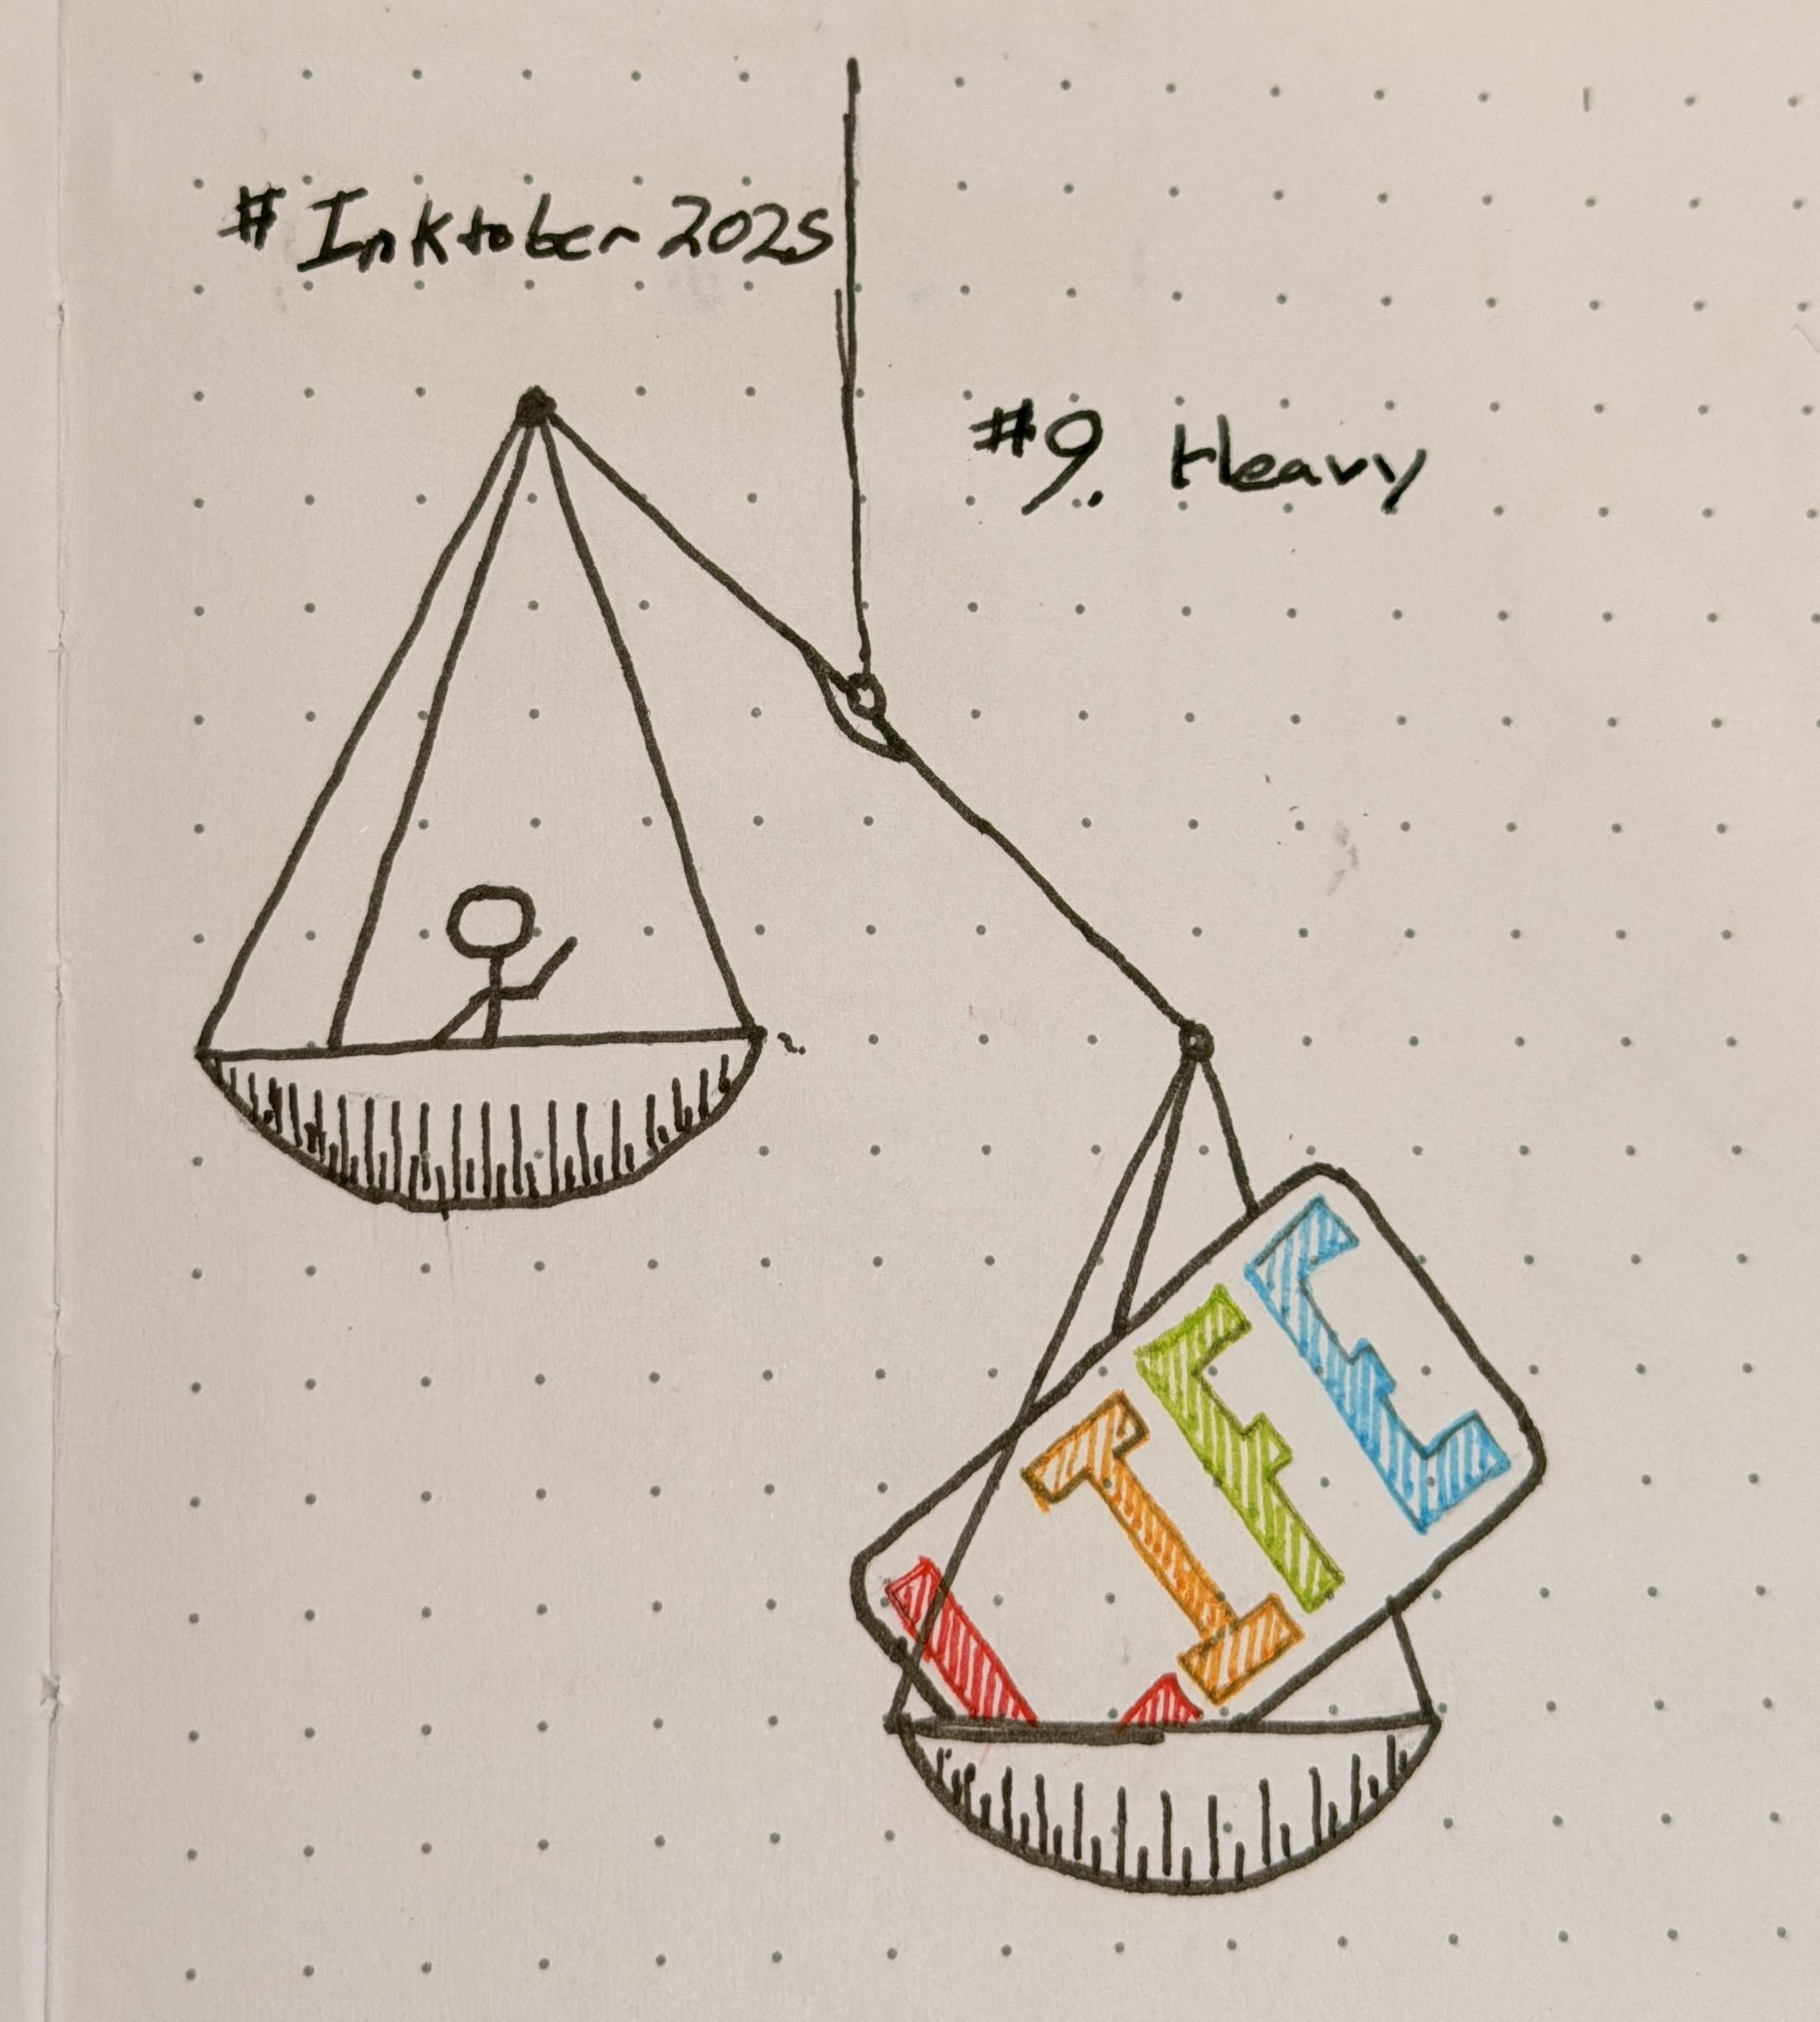 # Inktober 2025
#9. Heavy
LIFE